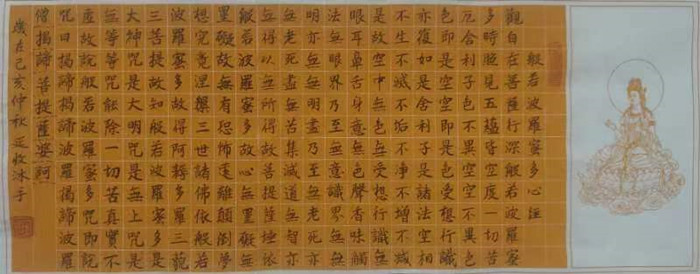 般若波羅蜜多心經
觀自在菩薩行深般若波羅蜜
多時照見五蘊皆空度一切苦
厄舍利子色不異空空不異色
色即是空空即是色受想行識
亦復如是舍利子是諸法空相
不生不滅不垢不淨不增不減
是故空中無色無受想行識無
眼耳鼻舌身意無色聲香味觸
法無眼界乃至無意識界無無
明亦無無明盡乃至無老死亦
無老死盡無苦集滅道無智亦
無得以無所得故菩提薩埵依
般若波羅蜜多故心無罣礙無
罣礙故無有恐怖遠離顛倒夢
想究竟涅槃三世諸佛依般若
波羅蜜多故得阿耨多羅三藐
三菩提故知般若波羅蜜多是
大神咒是大明咒是無上咒是
無等等咒能除一切苦真實不
虛故說般若波羅蜜多咒即說
咒曰揭諦揭諦波羅揭諦波羅
僧揭諦菩提薩婆訶
歲在己亥仲秋沐手